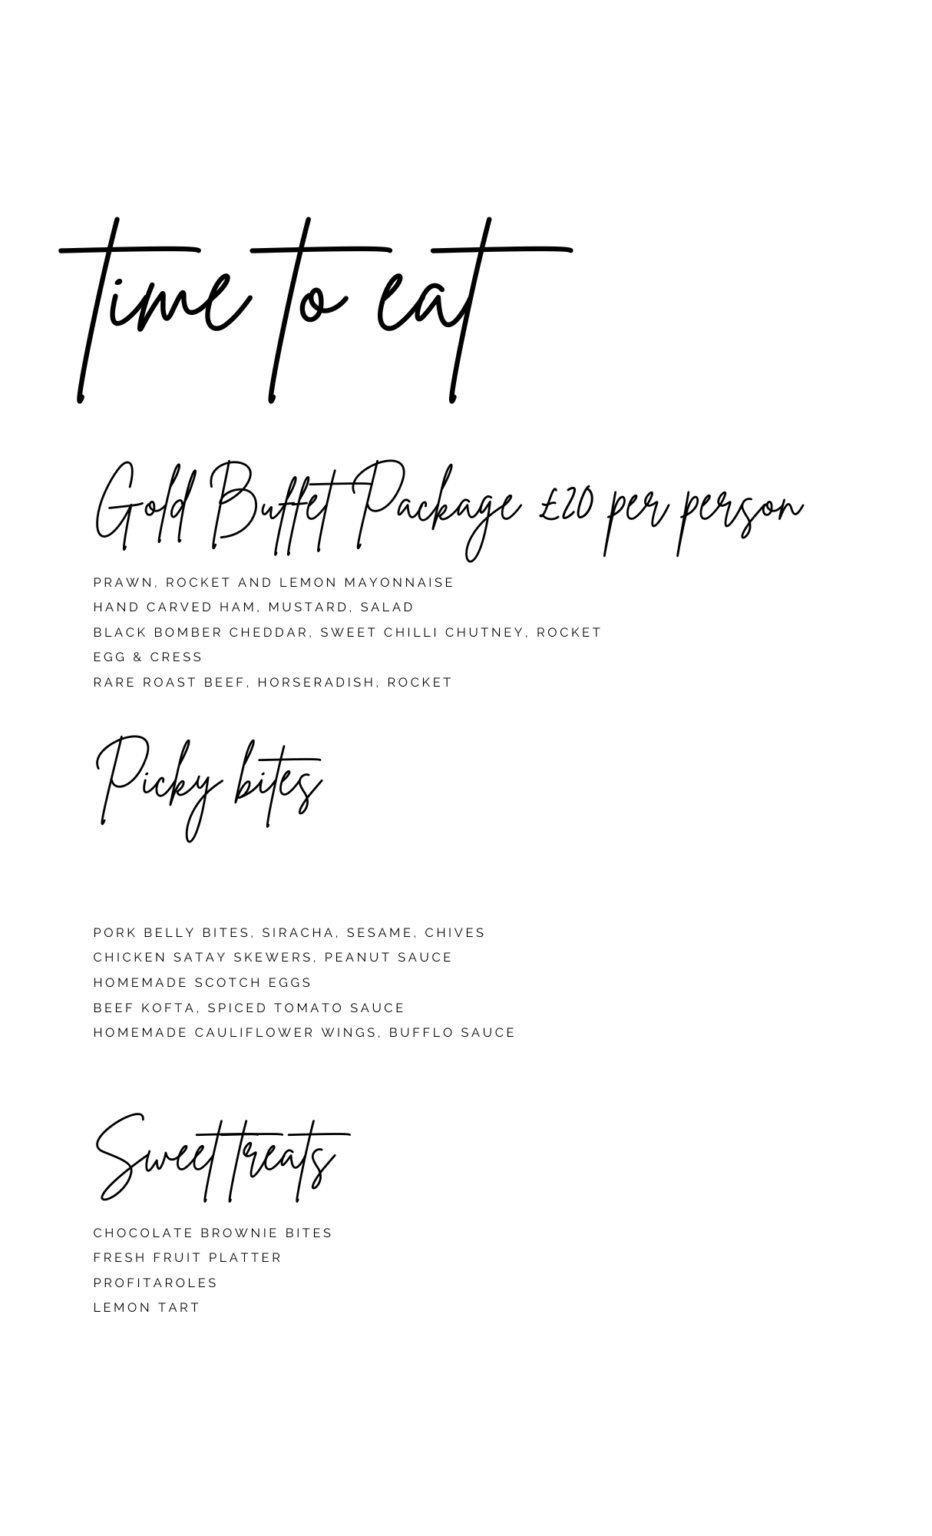 time to eat
Gold Buffet Package £20 per person
PRAWN, ROCKET AND LEMON MAYONNAISE
HAND CARVED HAM, MUSTARD, SALAD
BLACK BOMBER CHEDDAR, SWEET CHILLI CHUTNEY, ROCKET
EGG & CRESS
RARE ROAST BEEF, HORSERADISH, ROCKET
Picky bites
PORK BELLY BITES, SIRACHA, SESAME, CHIVES
CHICKEN SATAY SKEWERS, PEANUT SAUCE
HOMEMADE SCOTCH EGGS
BEEF KOFTA, SPICED TOMATO SAUCE
HOMEMADE CAULIFLOWER WINGS, BUFFLO SAUCE
Sweet treats
CHOCOLATE BROWNIE BITES
FRESH FRUIT PLATTER
PROFITAROLES
LEMON TART